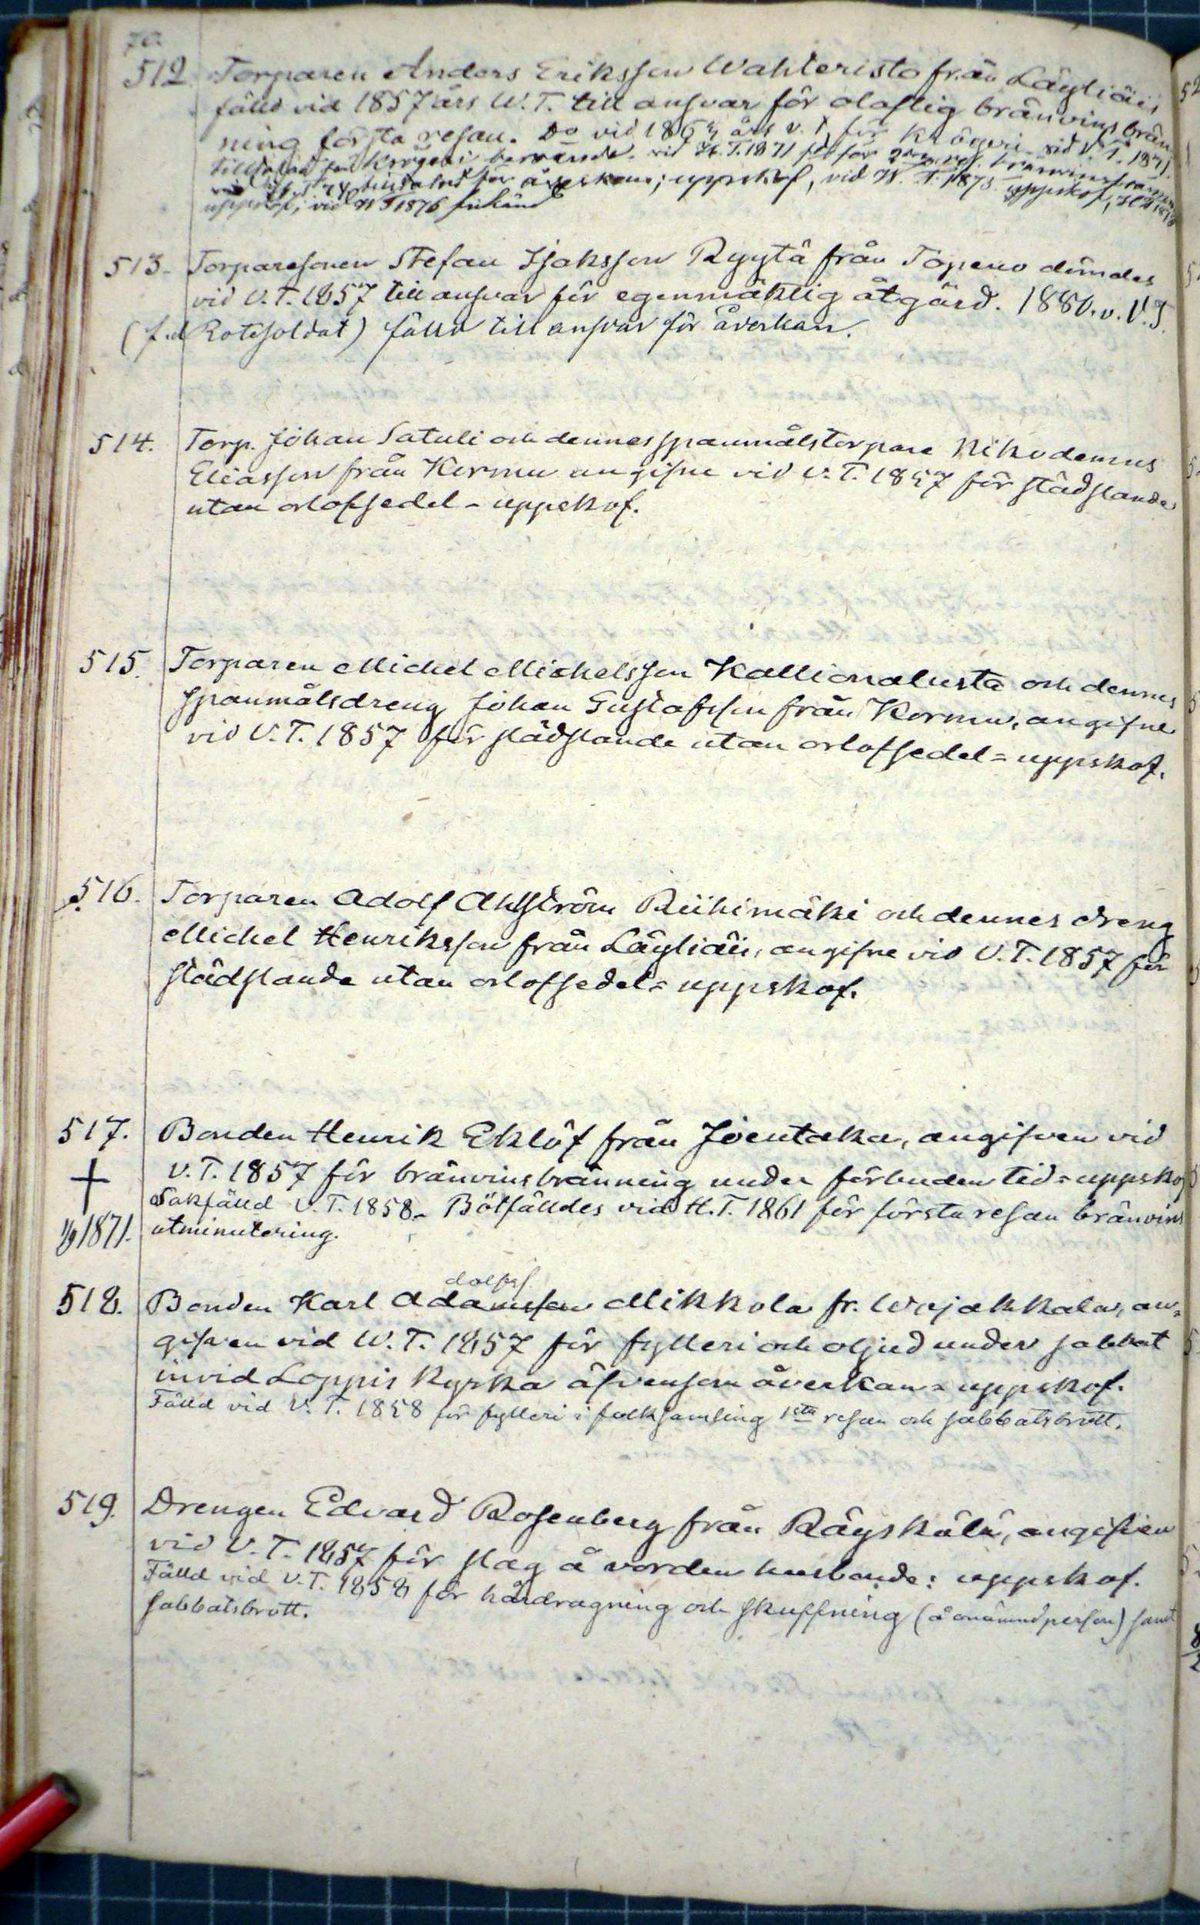 70.
512 Torparen Anders Eriksson Wahteristo från Läyliäis
fälld vid 1857 års W.T. till ansvar för olaflig bränvinsbrän-
ning första resan. Do vid 1863 års v.T. för krögeri vid V.T. 1871
tilltalad för krögeri beroende. vid H.T. 1871 för
tilltalad för åverkan; uppskof, vid W.T. 1873 uppskof,
uppskof; vid H T 1876 frikänd
513- Torparesonen Stefan Isaksson Ryytä från Topeno dömdes
vid V.T. 1857 till ansvar för egenmäktig åtgärd. 1880. v. V.T.
(f.d Rotesoldat) fälld till ansvar för åverkan.
514. Torp. Johan Satuli och dennes spanmålstorpare Nikodemus
Eliasson från Kormu angifne vid V.T. 1857 för städslande
utan orlofssedel - uppskof.
515. Torparen Michel Michelsson Kallionalusta och dennes
spanmålsdreng Johan Gustafsson från Kormu, angifne
vid V.T. 1857 för städslande utan orlofssedel = uppskof.
516. Torparen Adolf Ahlström Riihimäki och dennes dreng
Michel Henriksson från Läyliäis, angifne vid V.T. 1857 för
städslande utan orlofssedel = uppskof.
517. Bonden Henrik Eklöf från Joentaka, angifven vid
V.T. 1857 för bränvinsbränning under förbuden tid = uppskof
Sakfälld V.T. 1858- Bötfälldes vid H.T. 1861 för första resan bränvins
1/9 1871. utminutering.
dolfss
518. Bonden Karl Adamsson Mikkola fr. Wojakkala, an=
gifven vid W.T. 1857 för fylleri och oljud under sabbat
invid Loppis kyrka äfvensom åverkan = uppskof.
Fälld vid V.T. 1858 för fylleri i folksamling 1sta resan och sabbatsbrott.
519. Drengen Edvard Rosenberg från Räyskälä, angifven
vid V.T. 1857 för slag å vorden husbonde: uppskof.
Fälld vid V.T. 1858 för hårdragning och skuffning (å onämnd person) samt
sabbatsbrott.